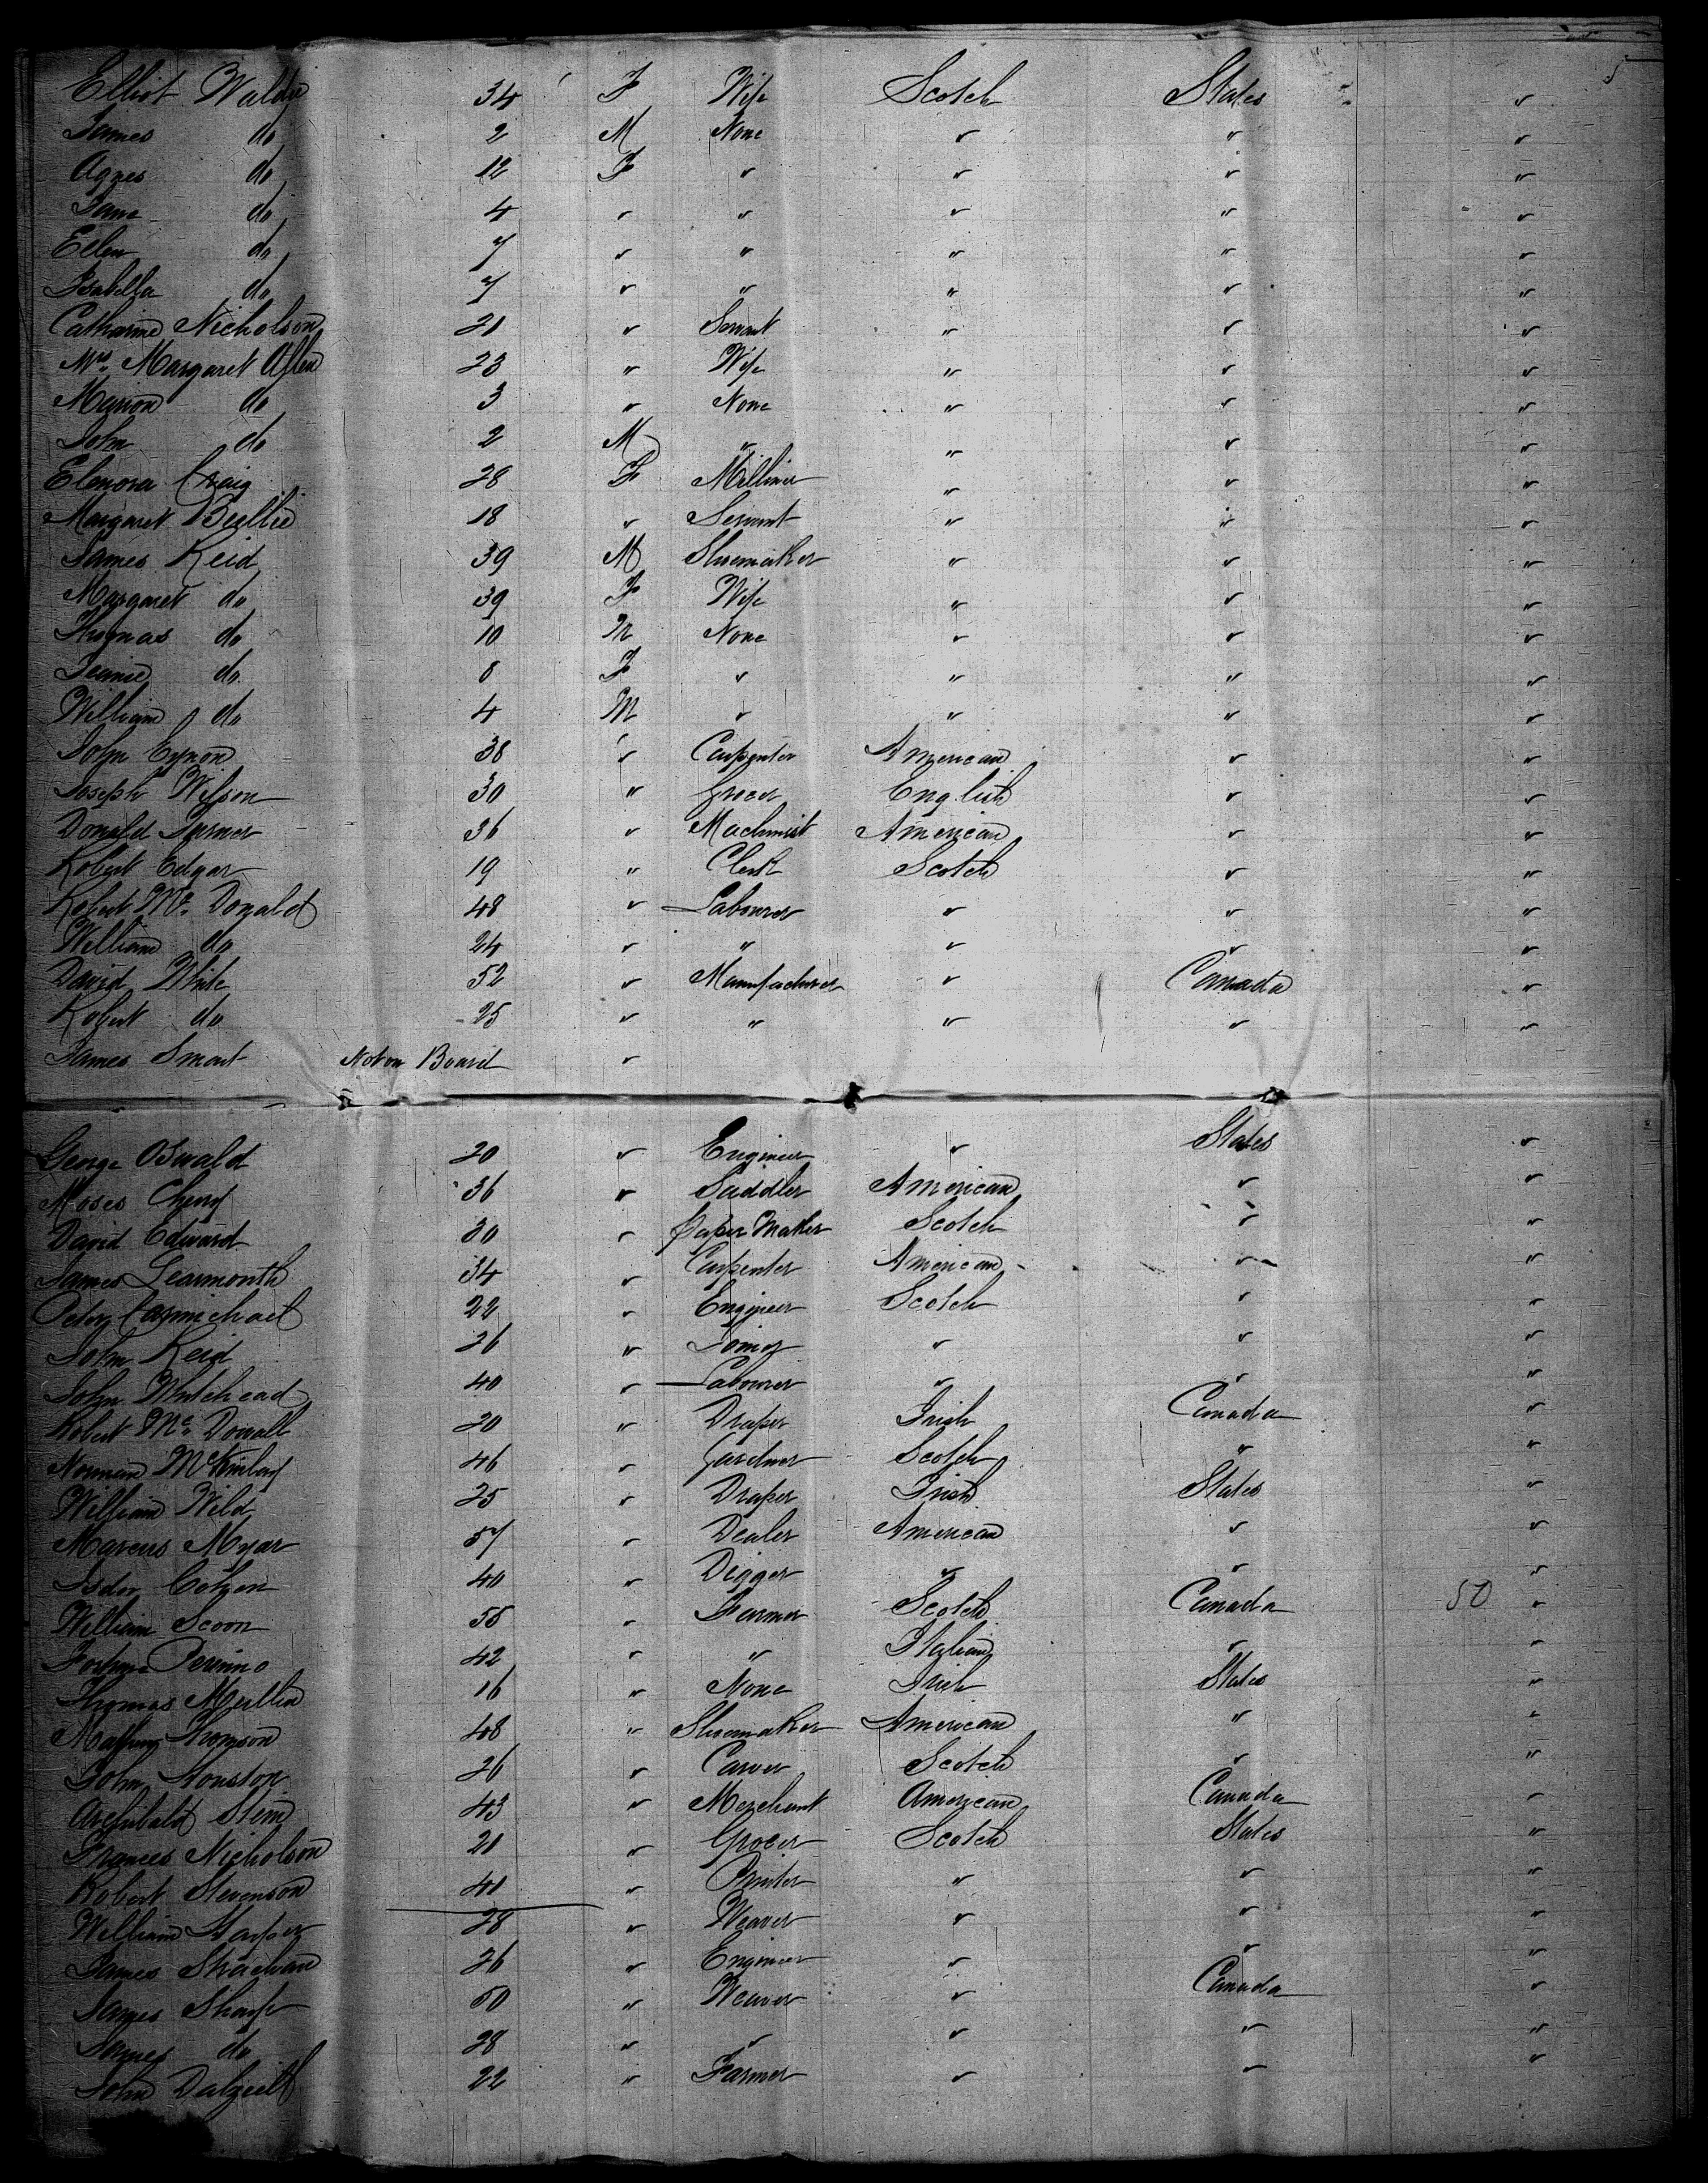 Elliot Waldie 34 F Wife Scotch States "
James do 2 M None " " "
Agnes do 12 F " " " "
Jane do 4 " " " " "
Ellen do 7 " " " " "
Isabella do 7 " " " " "
Catharine Nicholson 21 " Servant " " "
Mrs. Margaret Allen 23 " Wife " " "
Marion do 3 " None " " "
John do 2 M " " " "
Elenora Craig 28 F Milliner " " "
Margaret Beillie 18 " Servant " " "
James Reid 39 M Shoemaker " " "
Margaret do 39 F Wife " " "
Thomas do 10 M None " " "
Jeanie do 8 F " " " "
William do 4 M " " " "
John Eynon 38 " Carpenter American " "
Joseph Wilson 30 " Grocer English " "
Donald Turner 36 " Machinist American " "
Robert Edgar 19 " Clerk Scotch " "
Robert Mc. Donald 48 " Labourer " " "
William do 24 " " " " "
David White 52 " Manufacturer " Canada "
Robert do 25 " " " " "
James Smart Not on Board "
George Oswald 20 " Engineer " States "
Moses Cherry 36 " Saddler American " "
David Edward 30 " Paper Maker Scotch " "
James Learmonth 34 " Carpenter American " "
Peter Carmichael 22 " Engineer Scotch " "
John Reid 26 " Joiner " " "
John Whitehead 40 " Labourer " " "
Robert Mc. Dowall 20 " Draper Irish Canada "
Norman McKinlay 46 " Gardner Scotch " "
William Wild 25 " Draper Irish States "
Marcus Myar 57 " Dealer American " "
Isdor Cohen 40 " Digger " " "
William Scoon 55 " Farmer Scotch Canada 50 "
Perinno 42 " " Italian " "
Thomas Mullin 16 " None Irish States "
Thomson 48 " Shoemaker American " "
John Houston 26 " Carver Scotch " "
Archibald 43 " Merchant American Canada "
Frances Nicholson 21 " Grocer Scotch States "
Robert Stevenson 41 " Printer " " "
William Harper 28 " Weaver " " "
James Strachan 26 " Engineer " " "
James Sharp 50 " Weaver " Canada "
James do 28 " " " " "
John Dalzeill 22 " Farmer " " "